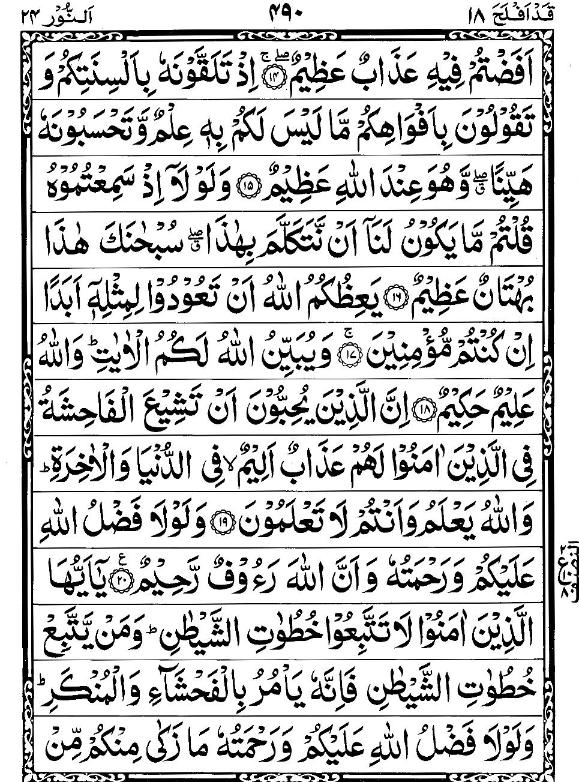 قَدْ اَفْلَحَ ١٨ ٤٩٠ اَلنُّوْر ٢٤
اَفَضْتُمْ فِيْهِ عَذَابٌ عَظِيْمٌ ۚۖ ۝١٤ اِذْ تَلَقَّوْنَهٗ بِاَلْسِنَتِكُمْ وَ
تَقُوْلُوْنَ بِاَفْوَاهِكُمْ مَّا لَيْسَ لَكُمْ بِهٖ عِلْمٌ وَّتَحْسَبُوْنَهٗ
هَيِّنًا ۖۗ وَّهُوَ عِنْدَ اللّٰهِ عَظِيْمٌ ۝١٥ وَلَوْ لَاۤ اِذْ سَمِعْتُمُوْهُ
قُلْتُمْ مَّا يَكُوْنُ لَنَاۤ اَنْ نَّتَكَلَّمَ بِهٰذَا ۖۗ سُبْحٰنَكَ هٰذَا
بُهْتَانٌ عَظِيْمٌ ۝١٦ يَعِظُكُمُ اللّٰهُ اَنْ تَعُوْدُوْا لِمِثْلِهٖۤ اَبَدًا
اِنْ كُنْتُمْ مُّؤْمِنِيْنَ ۚ ۝١٧ وَيُبَيِّنُ اللّٰهُ لَكُمُ الْاٰيٰتِ ؕ وَاللّٰهُ
عَلِيْمٌ حَكِيْمٌ ۝١٨ اِنَّ الَّذِيْنَ يُحِبُّوْنَ اَنْ تَشِيْعَ الْفَاحِشَةُ
فِى الَّذِيْنَ اٰمَنُوْا لَهُمْ عَذَابٌ اَلِيْمٌ ۙ فِى الدُّنْيَا وَالْاٰخِرَةِ ؕ
وَاللّٰهُ يَعْلَمُ وَاَنْتُمْ لَا تَعْلَمُوْنَ ۝١٩ وَلَوْلَا فَضْلُ اللّٰهِ
عَلَيْكُمْ وَرَحْمَتُهٗ وَاَنَّ اللّٰهَ رَءُوْفٌ رَّحِيْمٌ ۝٢٠ ع يٰۤاَيُّهَا
الَّذِيْنَ اٰمَنُوْا لَا تَتَّبِعُوْا خُطُوٰتِ الشَّيْطٰنِ ؕ وَمَنْ يَّتَّبِعْ
خُطُوٰتِ الشَّيْطٰنِ فَاِنَّهٗ يَاْمُرُ بِالْفَحْشَآءِ وَالْمُنْكَرِ ؕ
وَلَوْلَا فَضْلُ اللّٰهِ عَلَيْكُمْ وَرَحْمَتُهٗ مَا زَكٰى مِنْكُمْ مِّنْ